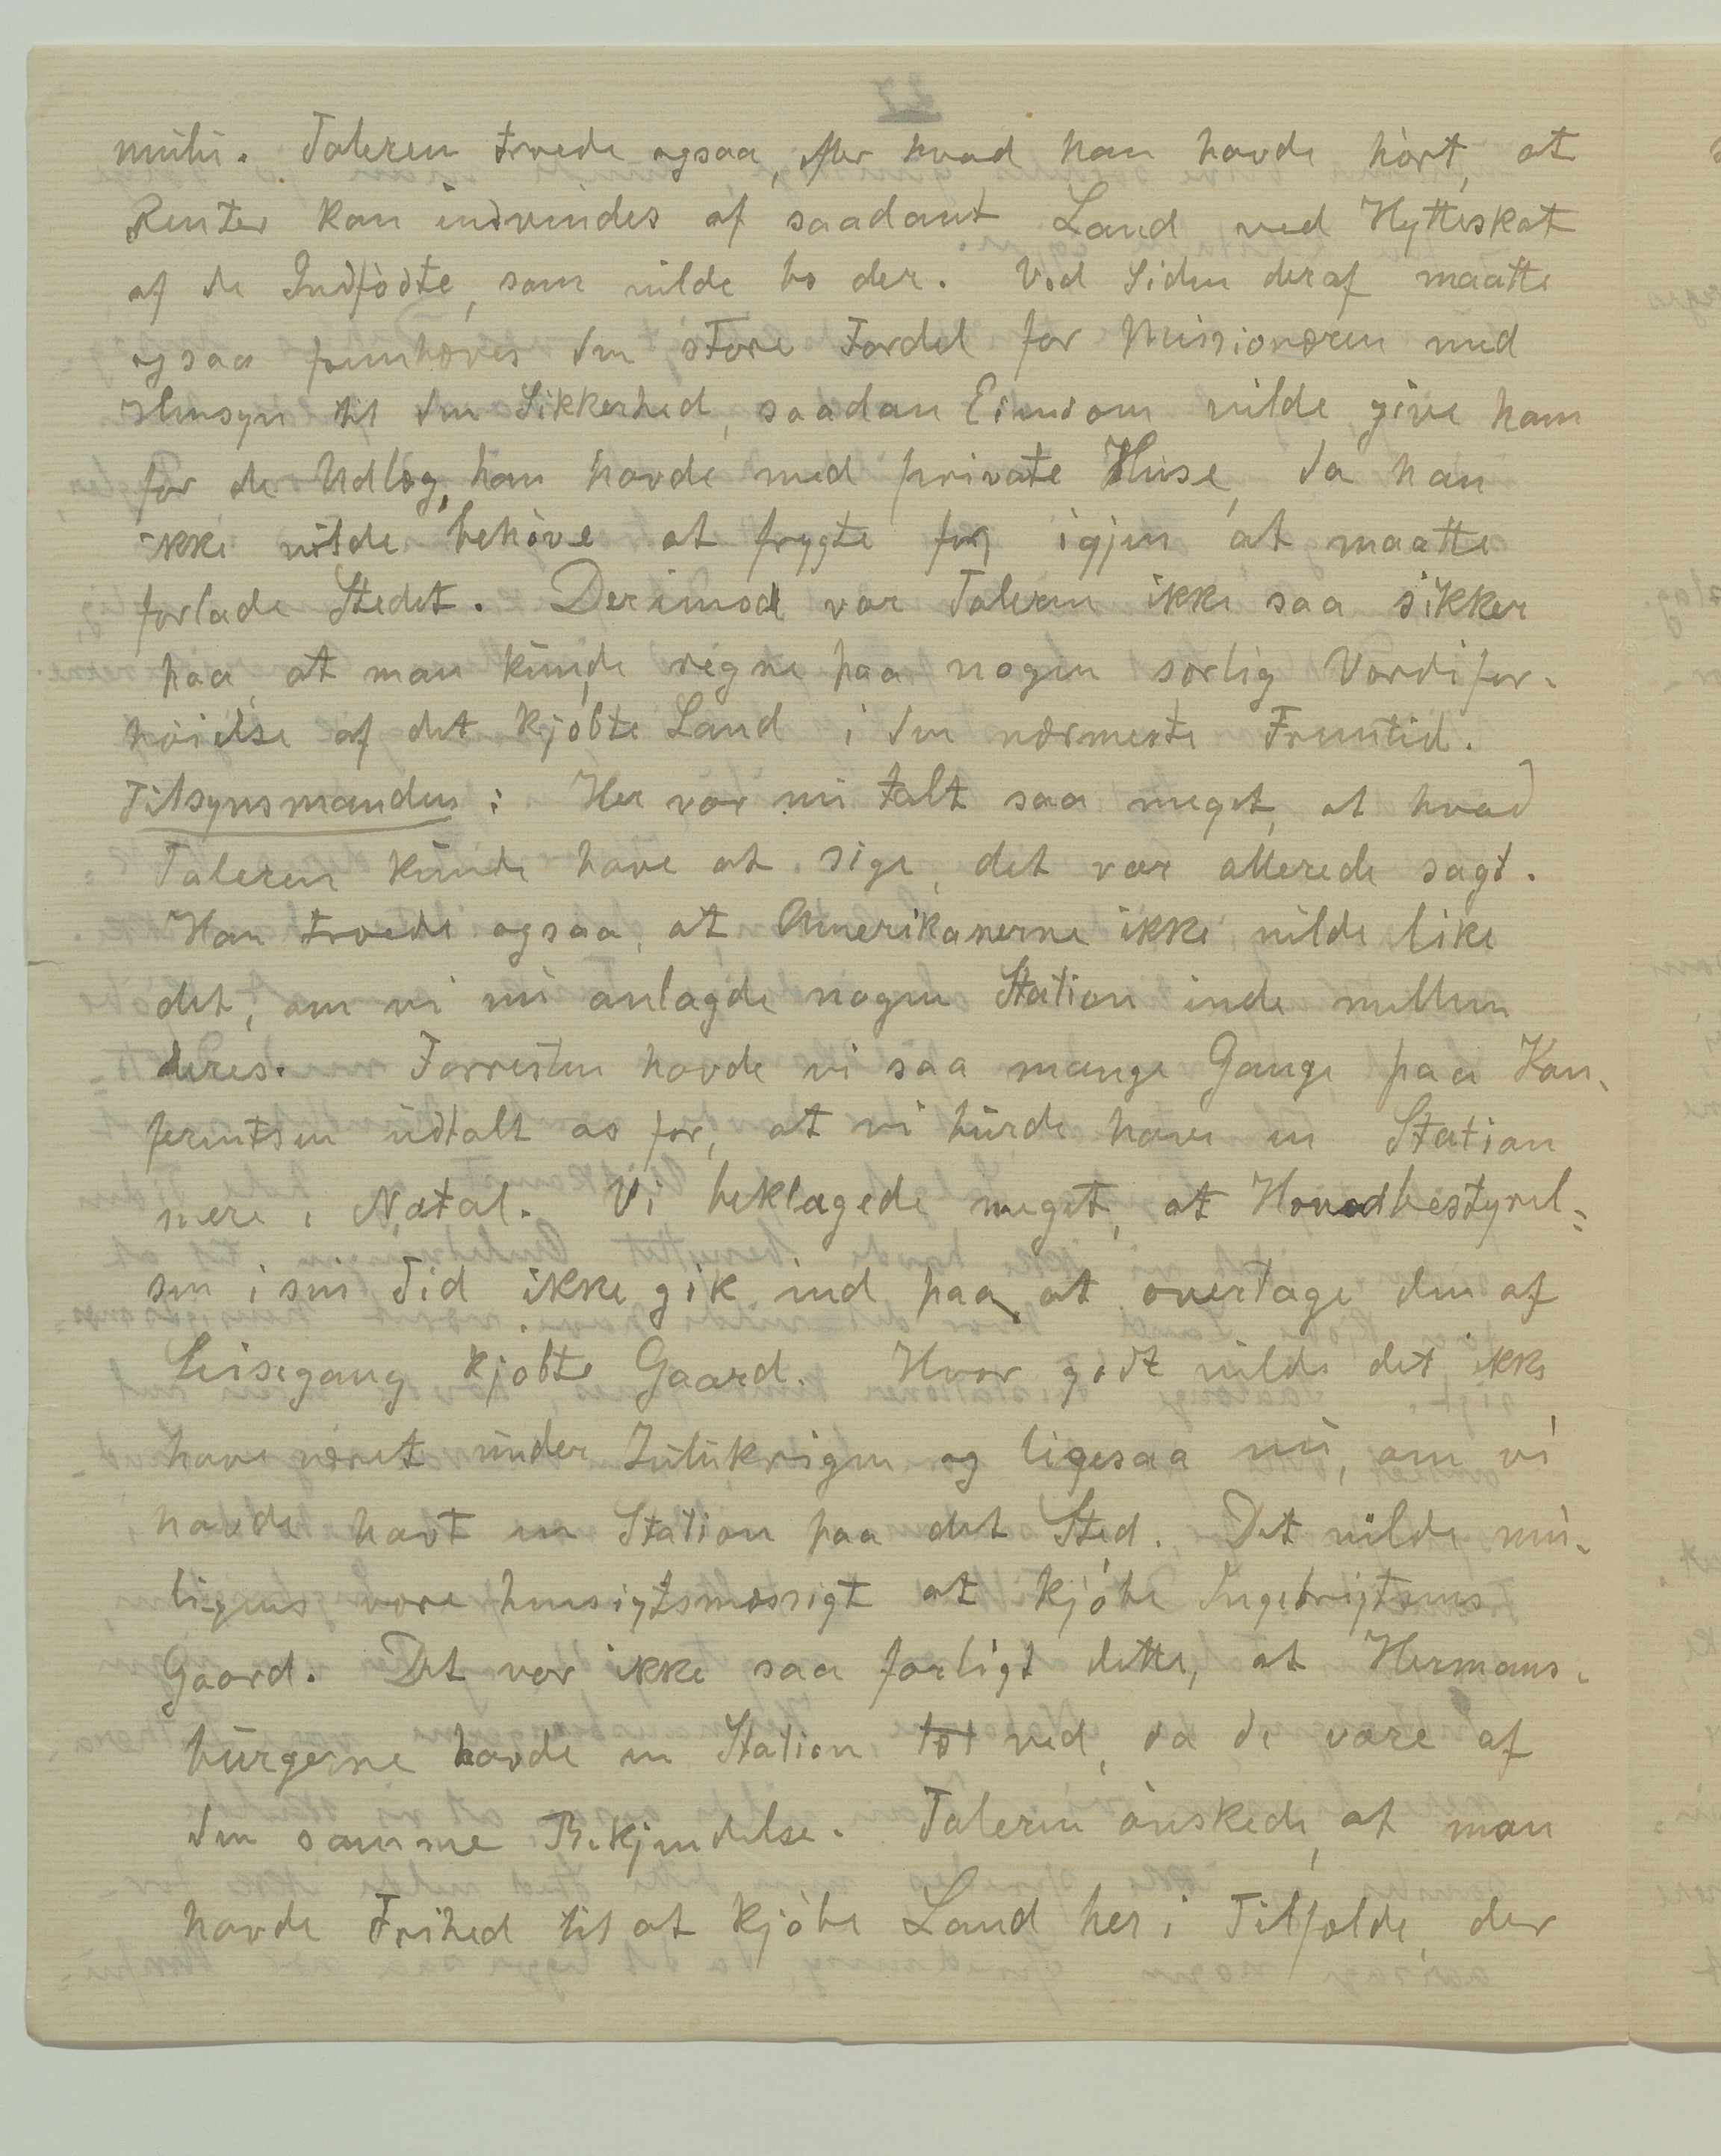 muli. Taleren troede ogsaa, efter hvad han havde hört, at
Renter kan indvindes af saadant Land ved Hytteskat
af de Indfödte, som vilde bo der. Ved Siden deraf maatte
ogsaa fremhæves den store Fordel for Missionæren med
Hensyn til den Sikkerhed, saadan Eiendom vilde give ham
for de Udlæg, han havde med private Huse, da han
ikke vilde behöve at frygte for igjen at maatte
forlade Stedet. Derimod var Taleren ikke saa sikker
paa, at man kunde regne paa nogen sœrlig Vœrdifor-
höielse af det kjöbte Land i den nœrmeste Fremtid.
Tilsynsmanden: Her var nu talt saa meget, at hvad
Taleren kunde have at sige, det var allerede sagt.
Han troede ogsaa, at Amerikanerne ikke vilde like
det, om vi nu anlagde nogen Station inde mellem
deres. Forresten havde vi saa mange Gange paa Kon-
ferentsen udtalt os for, at vi burde have en Station
mere i Natal. Vi beklagede meget, at Hovedbestyrel-
sen i sin Tid ikke gik ind paa at overtage den af
Leisegang kjöbte Gaard. Hvor godt vilde det ikke
have vœret under Zulukrigen og ligesaa nu, om vi
havde havt en Station paa det Sted. Det vilde mu-
ligens vœre hensigtsmœssigt at kjöbe Ingebrigtsens
Gaard. Det var ikke saa farligt dette, at Hermans-
burgerne havde en Station tœt ved, da de vare af
den samme Bekjendelse. Taleren önskede, at man
havde Frihed til at kjöbe Land her i Tilfœlde, der